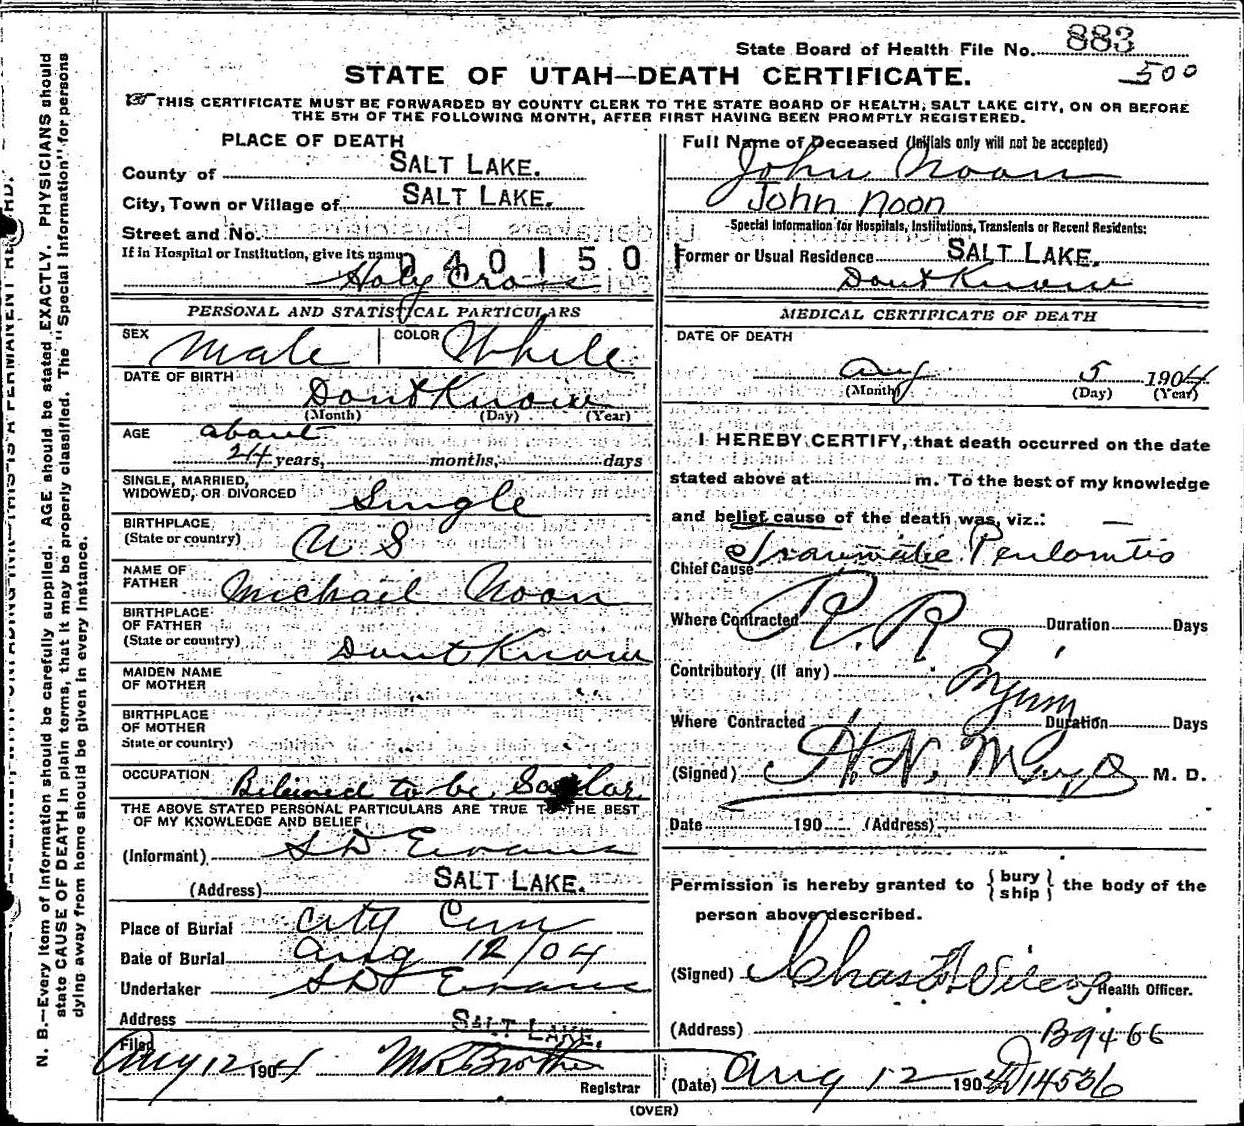 State Board of Health File No. 883
500
STATE OF UTAH—DEATH CERTIFICATE.
THIS CERTIFICATE MUST BE FORWARDED BY COUNTY CLERK TO THE STATE BOARD OF HEALTH, SALT LAKE CITY, ON OR BEFORE
THE 5TH OF THE FOLLOWING MONTH, AFTER FIRST HAVING BEEN PROMPTLY REGISTERED.
PLACE OF DEATH
County of SALT LAKE.
City, Town or Village of SALT LAKE.
Street and No.
If in Hospital or Institution, give its name
040150
Holy Cross
PERSONAL AND STATISTICAL PARTICULARS
SEX Male COLOR White
DATE OF BIRTH
Dont Know
(Month) (Day) (Year)
AGE about
24 years, months, days
SINGLE, MARRIED,
WIDOWED, OR DIVORCED Single
BIRTHPLACE
(State or country) U S
NAME OF
FATHER Michael Noon
BIRTHPLACE
OF FATHER
(State or country) Dont Know
MAIDEN NAME
OF MOTHER
BIRTHPLACE
OF MOTHER
State or country)
OCCUPATION Belived to be Sailor
THE ABOVE STATED PERSONAL PARTICULARS ARE TRUE TO THE BEST
OF MY KNOWLEDGE AND BELIEF
(Informant) S D Evans
(Address) SALT LAKE.
Place of Burial City Cem
Date of Burial Aug 12/04
Undertaker S D Evans
Address SALT LAKE.
Filed Aug 12 1904
Registrar
Full Name of Deceased (Initials only will not be accepted)
John Noon
John Noon
Special Information for Hospitals, Institutions, Transients or Recent Residents:
Former or Usual Residence SALT LAKE.
Dont Know
MEDICAL CERTIFICATE OF DEATH
DATE OF DEATH
Aug 5 1904
(Month) (Day) (Year)
I HEREBY CERTIFY, that death occurred on the date
stated above at m. To the best of my knowledge
and belief cause of the death was, viz.:
Chief Cause Traumatic Peritonitis
Where Contracted Duration Days
R.R. Injury
Contributory (if any)
Where Contracted Duration Days
(Signed) H. N. Mayo M. D.
Date 190 (Address)
Permission is hereby granted to { bury
ship } the body of the
person above described.
(Signed) Health Officer.
(Address) B94 66
(Date) Aug 12 190 D14536
(OVER)
N. B.—Every item of information should be carefully supplied. AGE should be stated EXACTLY. PHYSICIANS should
state CAUSE OF DEATH in plain terms, that it may be properly classified. The "Special Information" for persons
dying away from home should be given in every instance.